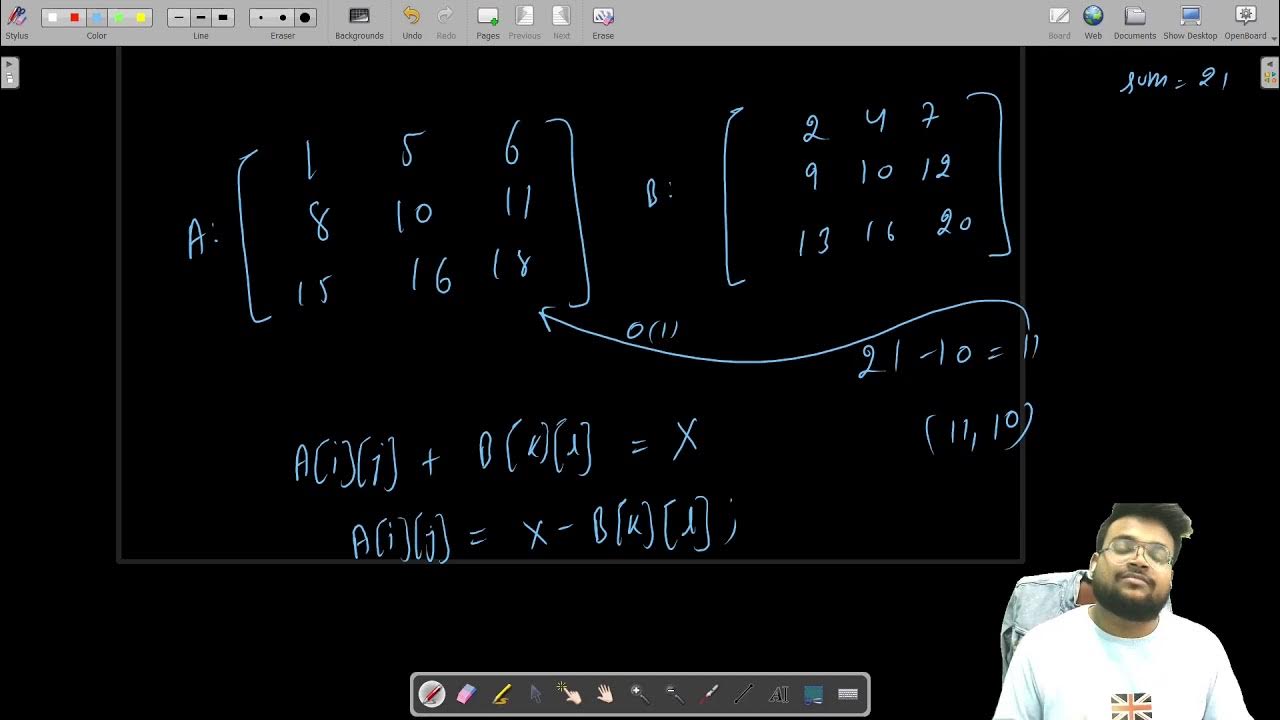 Stylus
Color
Line
Eraser
Backgrounds
Undo
Redo
Pages
Previous
Next
Erase
Board
Web
Documents
Show Desktop
OpenBoard
sum = 21
A:
1 5 6
8 10 11
15 16 18
B:
2 4 7
9 10 12
13 16 20
O(1)
21 - 10 = 11
(11, 10)
A[i][j] + B[k][l] = X
A[i][j] = X - B[k][l];
AI